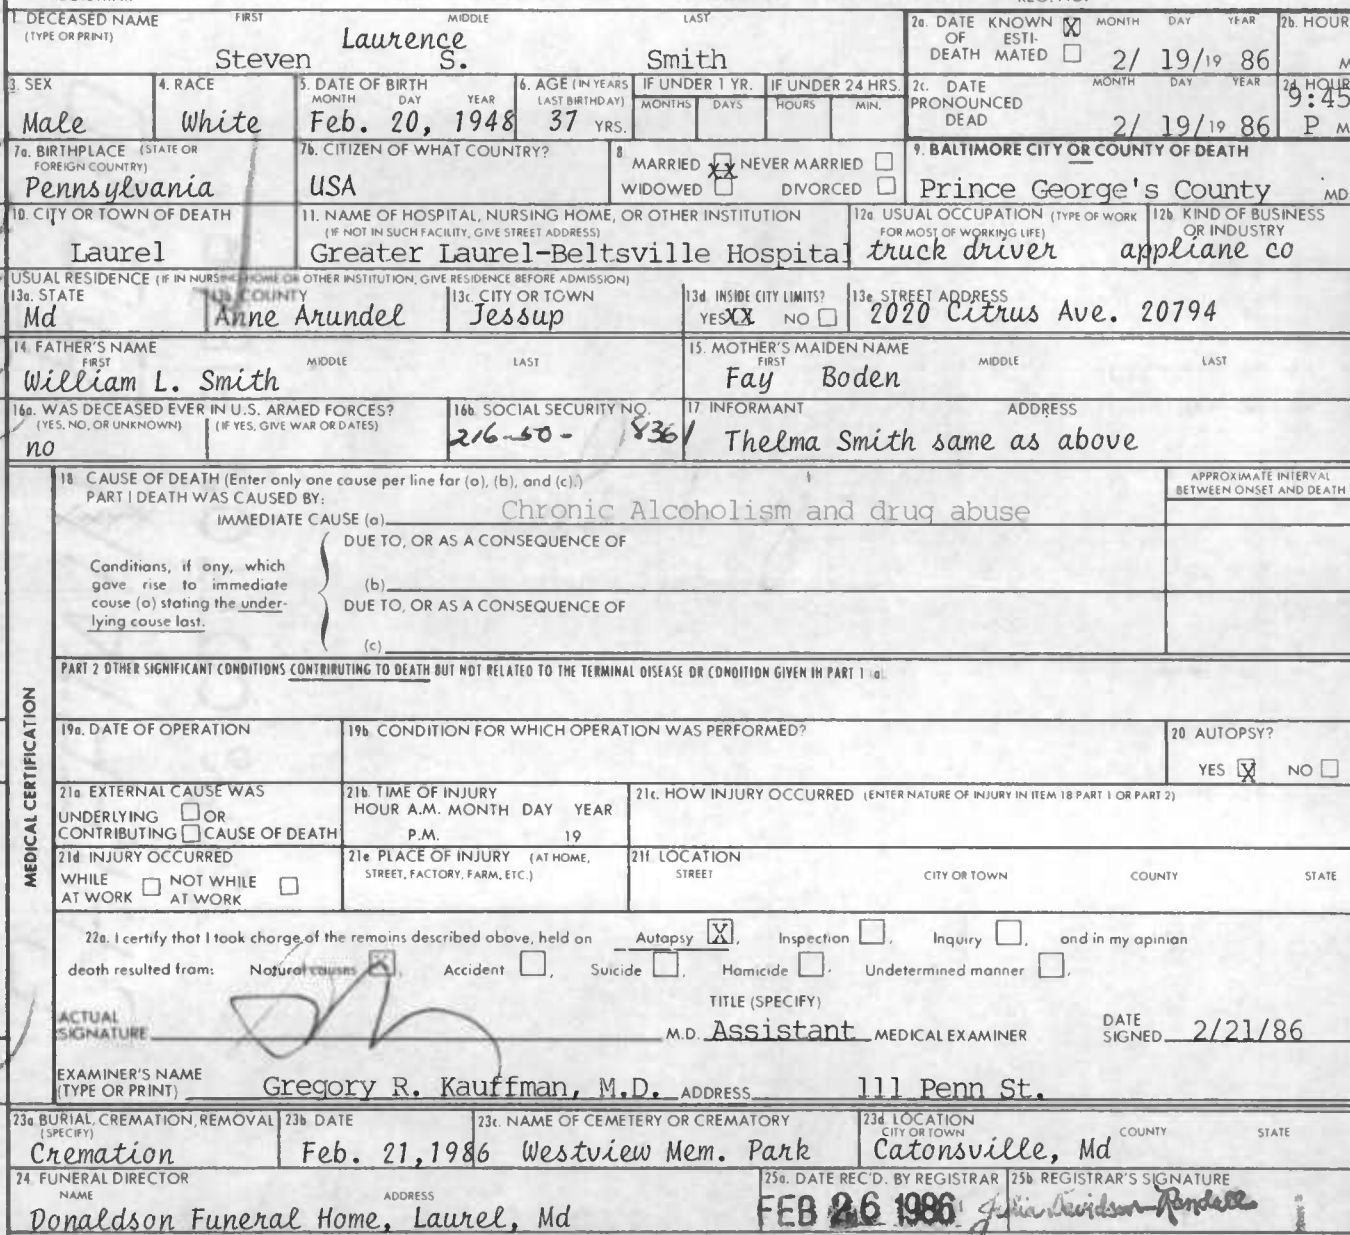 1 DECEASED NAME FIRST MIDDLE LAST
(TYPE OR PRINT)
Laurence
Steven S. Smith
2a. DATE KNOWN X MONTH DAY YEAR
OF ESTI-
DEATH MATED 2/ 19/19 86
2b. HOUR
M
3. SEX
Male
4. RACE
White
5. DATE OF BIRTH
MONTH DAY YEAR
Feb. 20, 1948
6. AGE (IN YEARS
LAST BIRTHDAY)
37 YRS.
IF UNDER 1 YR.
MONTHS DAYS
IF UNDER 24 HRS.
HOURS MIN.
2c. DATE MONTH DAY YEAR
PRONOUNCED
DEAD
2/ 19/19 86
2d HOUR
9:45
P M
7a. BIRTHPLACE (STATE OR
FOREIGN COUNTRY)
Pennsylvania
7b. CITIZEN OF WHAT COUNTRY?
USA
8
MARRIED XX NEVER MARRIED
WIDOWED DIVORCED
9. BALTIMORE CITY OR COUNTY OF DEATH
Prince George's County MD
10. CITY OR TOWN OF DEATH
Laurel
11. NAME OF HOSPITAL, NURSING HOME, OR OTHER INSTITUTION
(IF NOT IN SUCH FACILITY, GIVE STREET ADDRESS)
Greater Laurel-Beltsville Hospital
12a. USUAL OCCUPATION (TYPE OF WORK
FOR MOST OF WORKING LIFE)
truck driver
12b. KIND OF BUSINESS
OR INDUSTRY
appliane co
USUAL RESIDENCE (IF IN NURSING HOME OR OTHER INSTITUTION, GIVE RESIDENCE BEFORE ADMISSION)
13a. STATE
Md
13b. COUNTY
Anne Arundel
13c. CITY OR TOWN
Jessup
13d INSIDE CITY LIMITS?
YES XX NO
13e STREET ADDRESS
2020 Citrus Ave. 20794
14. FATHER'S NAME
FIRST MIDDLE LAST
William L. Smith
15. MOTHER'S MAIDEN NAME
FIRST MIDDLE LAST
Fay Boden
16a. WAS DECEASED EVER IN U.S. ARMED FORCES?
(YES, NO, OR UNKNOWN) (IF YES, GIVE WAR OR DATES)
no
16b. SOCIAL SECURITY NO.
216-50-8361
17 INFORMANT ADDRESS
Thelma Smith same as above
MEDICAL CERTIFICATION
18 CAUSE OF DEATH (Enter only one cause per line for (a), (b), and (c).)
PART I DEATH WAS CAUSED BY:
IMMEDIATE CAUSE (a) Chronic Alcoholism and drug abuse
APPROXIMATE INTERVAL
BETWEEN ONSET AND DEATH
DUE TO, OR AS A CONSEQUENCE OF
Conditions, if any, which
gave rise to immediate
cause (a) stating the under-
lying cause last.
(b)
DUE TO, OR AS A CONSEQUENCE OF
(c)
PART 2 OTHER SIGNIFICANT CONDITIONS CONTRIBUTING TO DEATH BUT NOT RELATED TO THE TERMINAL DISEASE OR CONDITION GIVEN IN PART 1 (a).
19a. DATE OF OPERATION
19b. CONDITION FOR WHICH OPERATION WAS PERFORMED?
20 AUTOPSY?
YES X NO
21a EXTERNAL CAUSE WAS
UNDERLYING OR
CONTRIBUTING CAUSE OF DEATH
21b. TIME OF INJURY
HOUR A.M. MONTH DAY YEAR
P.M. 19
21c. HOW INJURY OCCURRED (ENTER NATURE OF INJURY IN ITEM 18 PART 1 OR PART 2)
21d INJURY OCCURRED
WHILE NOT WHILE
AT WORK AT WORK
21e PLACE OF INJURY (AT HOME,
STREET, FACTORY, FARM, ETC.)
21f LOCATION
STREET CITY OR TOWN COUNTY STATE
22a. I certify that I took charge of the remains described above, held an Autopsy X, Inspection , Inquiry , and in my opinion
death resulted from: Natural causes X, Accident , Suicide , Homicide . Undetermined manner .
TITLE (SPECIFY)
ACTUAL
SIGNATURE M.D. Assistant MEDICAL EXAMINER
DATE
SIGNED 2/21/86
EXAMINER'S NAME
(TYPE OR PRINT) Gregory R. Kauffman, M.D. ADDRESS 111 Penn St.
23a BURIAL, CREMATION, REMOVAL
(SPECIFY)
Cremation
23b DATE
Feb. 21, 1986
23c. NAME OF CEMETERY OR CREMATORY
Westview Mem. Park
23d. LOCATION
CITY OR TOWN COUNTY STATE
Catonsville, Md
24. FUNERAL DIRECTOR
NAME ADDRESS
Donaldson Funeral Home, Laurel, Md
25a. DATE REC'D. BY REGISTRAR
FEB 26 1986
25b. REGISTRAR'S SIGNATURE
Julia Davidson-Randall